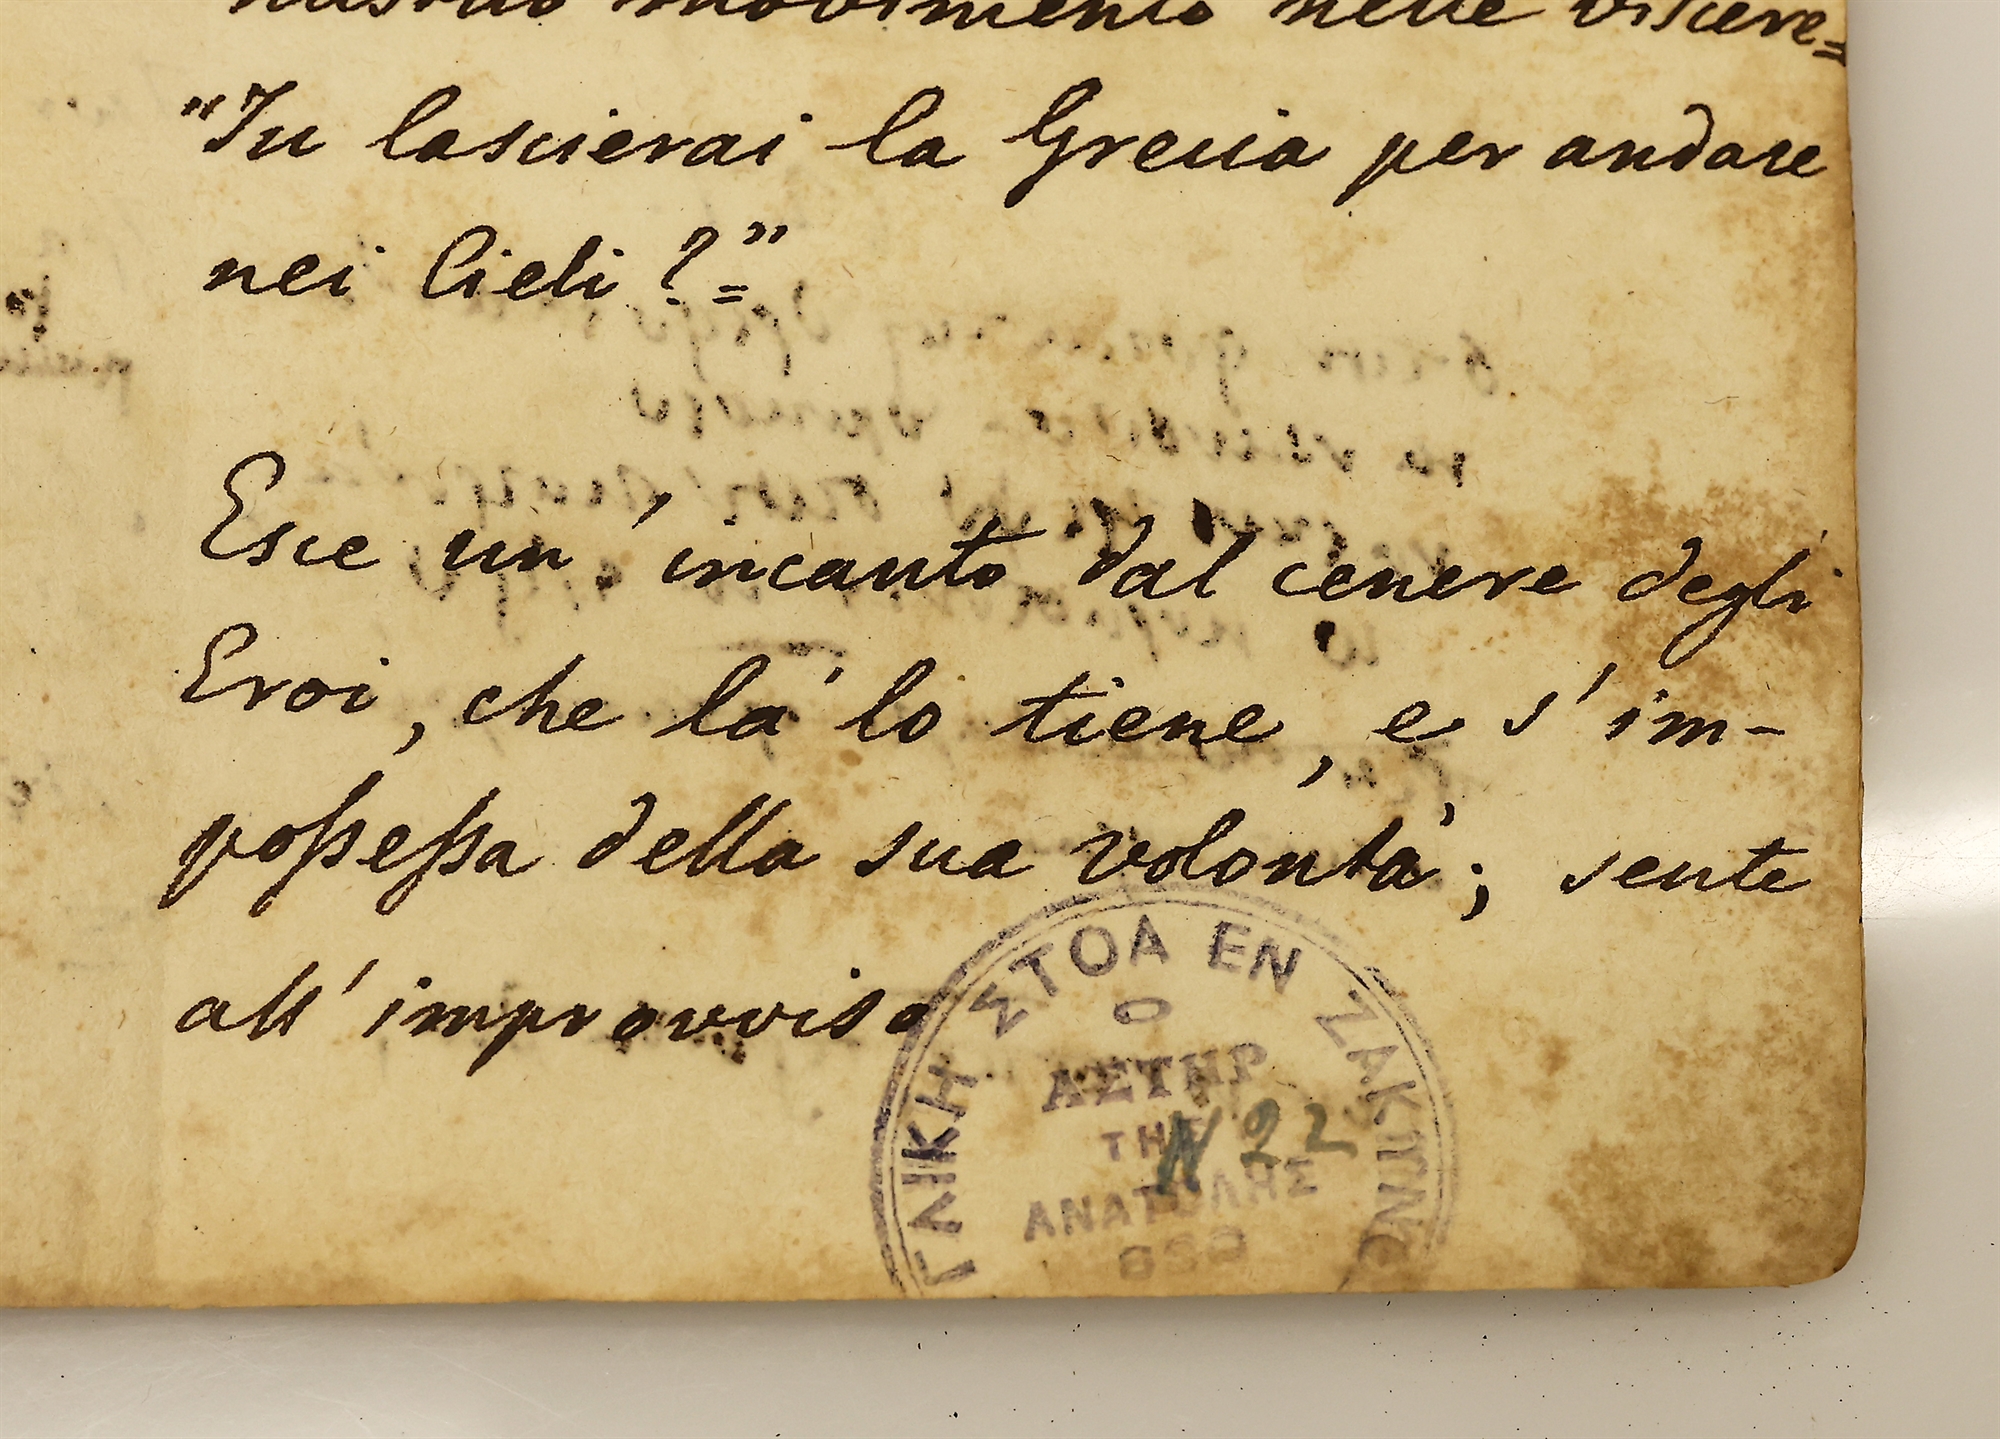 movimento nelle viscere=
"Tu lascierai la Grecia per andare
nei Cieli?="
Esce un' incanto dal cenere degli
Eroi, che là lo tiene, e s'im-
possessa della sua volontà; sente
all' improvviso
ΣΤΟΑ ΕΝ ΖΑΚΥΝΘ
Ο
ΑΣΤΗΡ
ΤΗΣ
N 22
ΑΝΑΤΟΛΗΣ